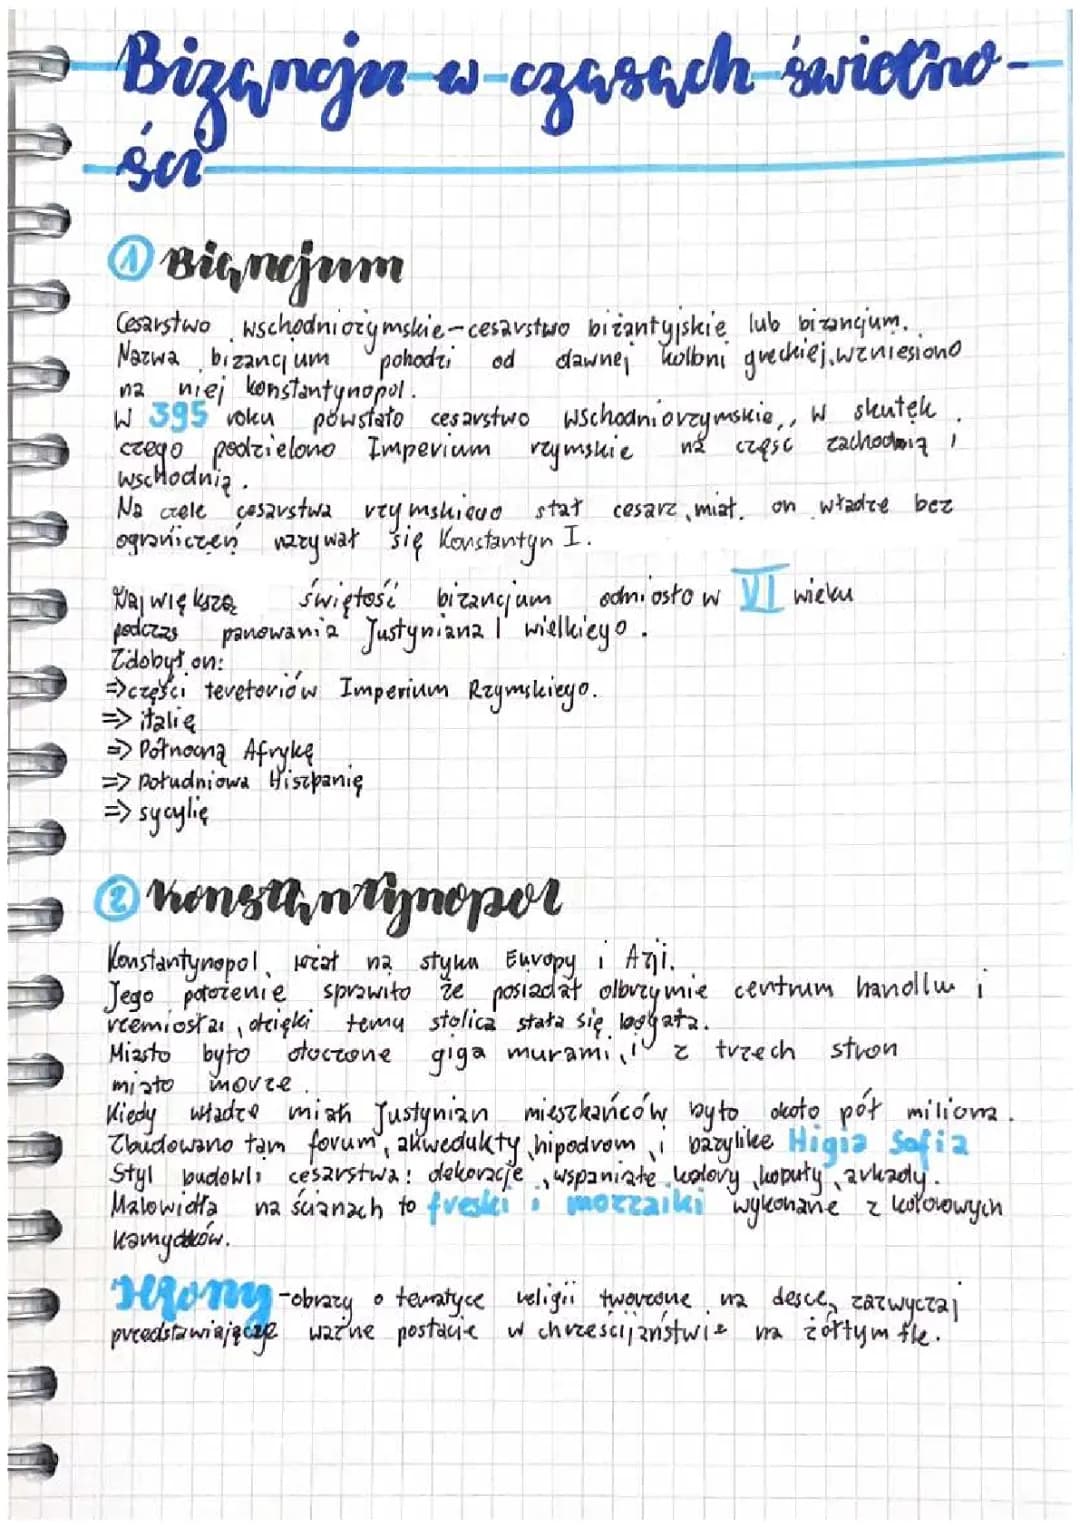 Bizancjum w czasach świetno-
ści
1 Biancjum
Cesarstwo wschodniorzymskie-cesarstwo bizantyjskie lub bizancjum.
Nazwa bizancjum pohodzi od dawnej koloni greckiej, wzniesiono
na niej konstantynopol.
W 395 roku powstało cesarstwo wschodniorzymskie, w skutek
czego podzielono Imperium rzymskie na część zachodnią i
wschodnią.
Na czele cesarstwa rzymskiego stał cesarz, miał on władze bez
ograniczeń nazywał się Konstantyn I.
Największą świętość bizancjum odniosło w VI wieku
podczas panowania Justyniana I wielkiego.
Zdobył on:
=> części teretoriów Imperium Rzymskiego.
=> italię
=> Północną Afrykę
=> południowa Hiszpanię
=> sycylię
2 Konstantynopol
Konstantynopol, leżał na styku Europy i Azji.
Jego położenie sprawiło że posiadał olbrzymie centrum handlu i
rzemiosła, dzięki temu stolica stała się bogata.
Miasto było otoczone giga murami, i z trzech stron
miało morze.
Kiedy władze miał Justynian mieszkańców było około pół miliona.
Zbudowano tam forum, akwedukty, hipodrom, i bazylike Higia Sofia
Styl budowli cesarstwa: dekoracje, wspaniałe kolory, kopuły, arkady.
Malowidła na ścianach to freski i mozzaiki wykonane z kolorowych
kamyczków.
Ikony -obrazy o tematyce religii tworzone na desce, zazwyczaj
przedstawiające ważne postacie w chrześcijaństwie na żółtym tle.